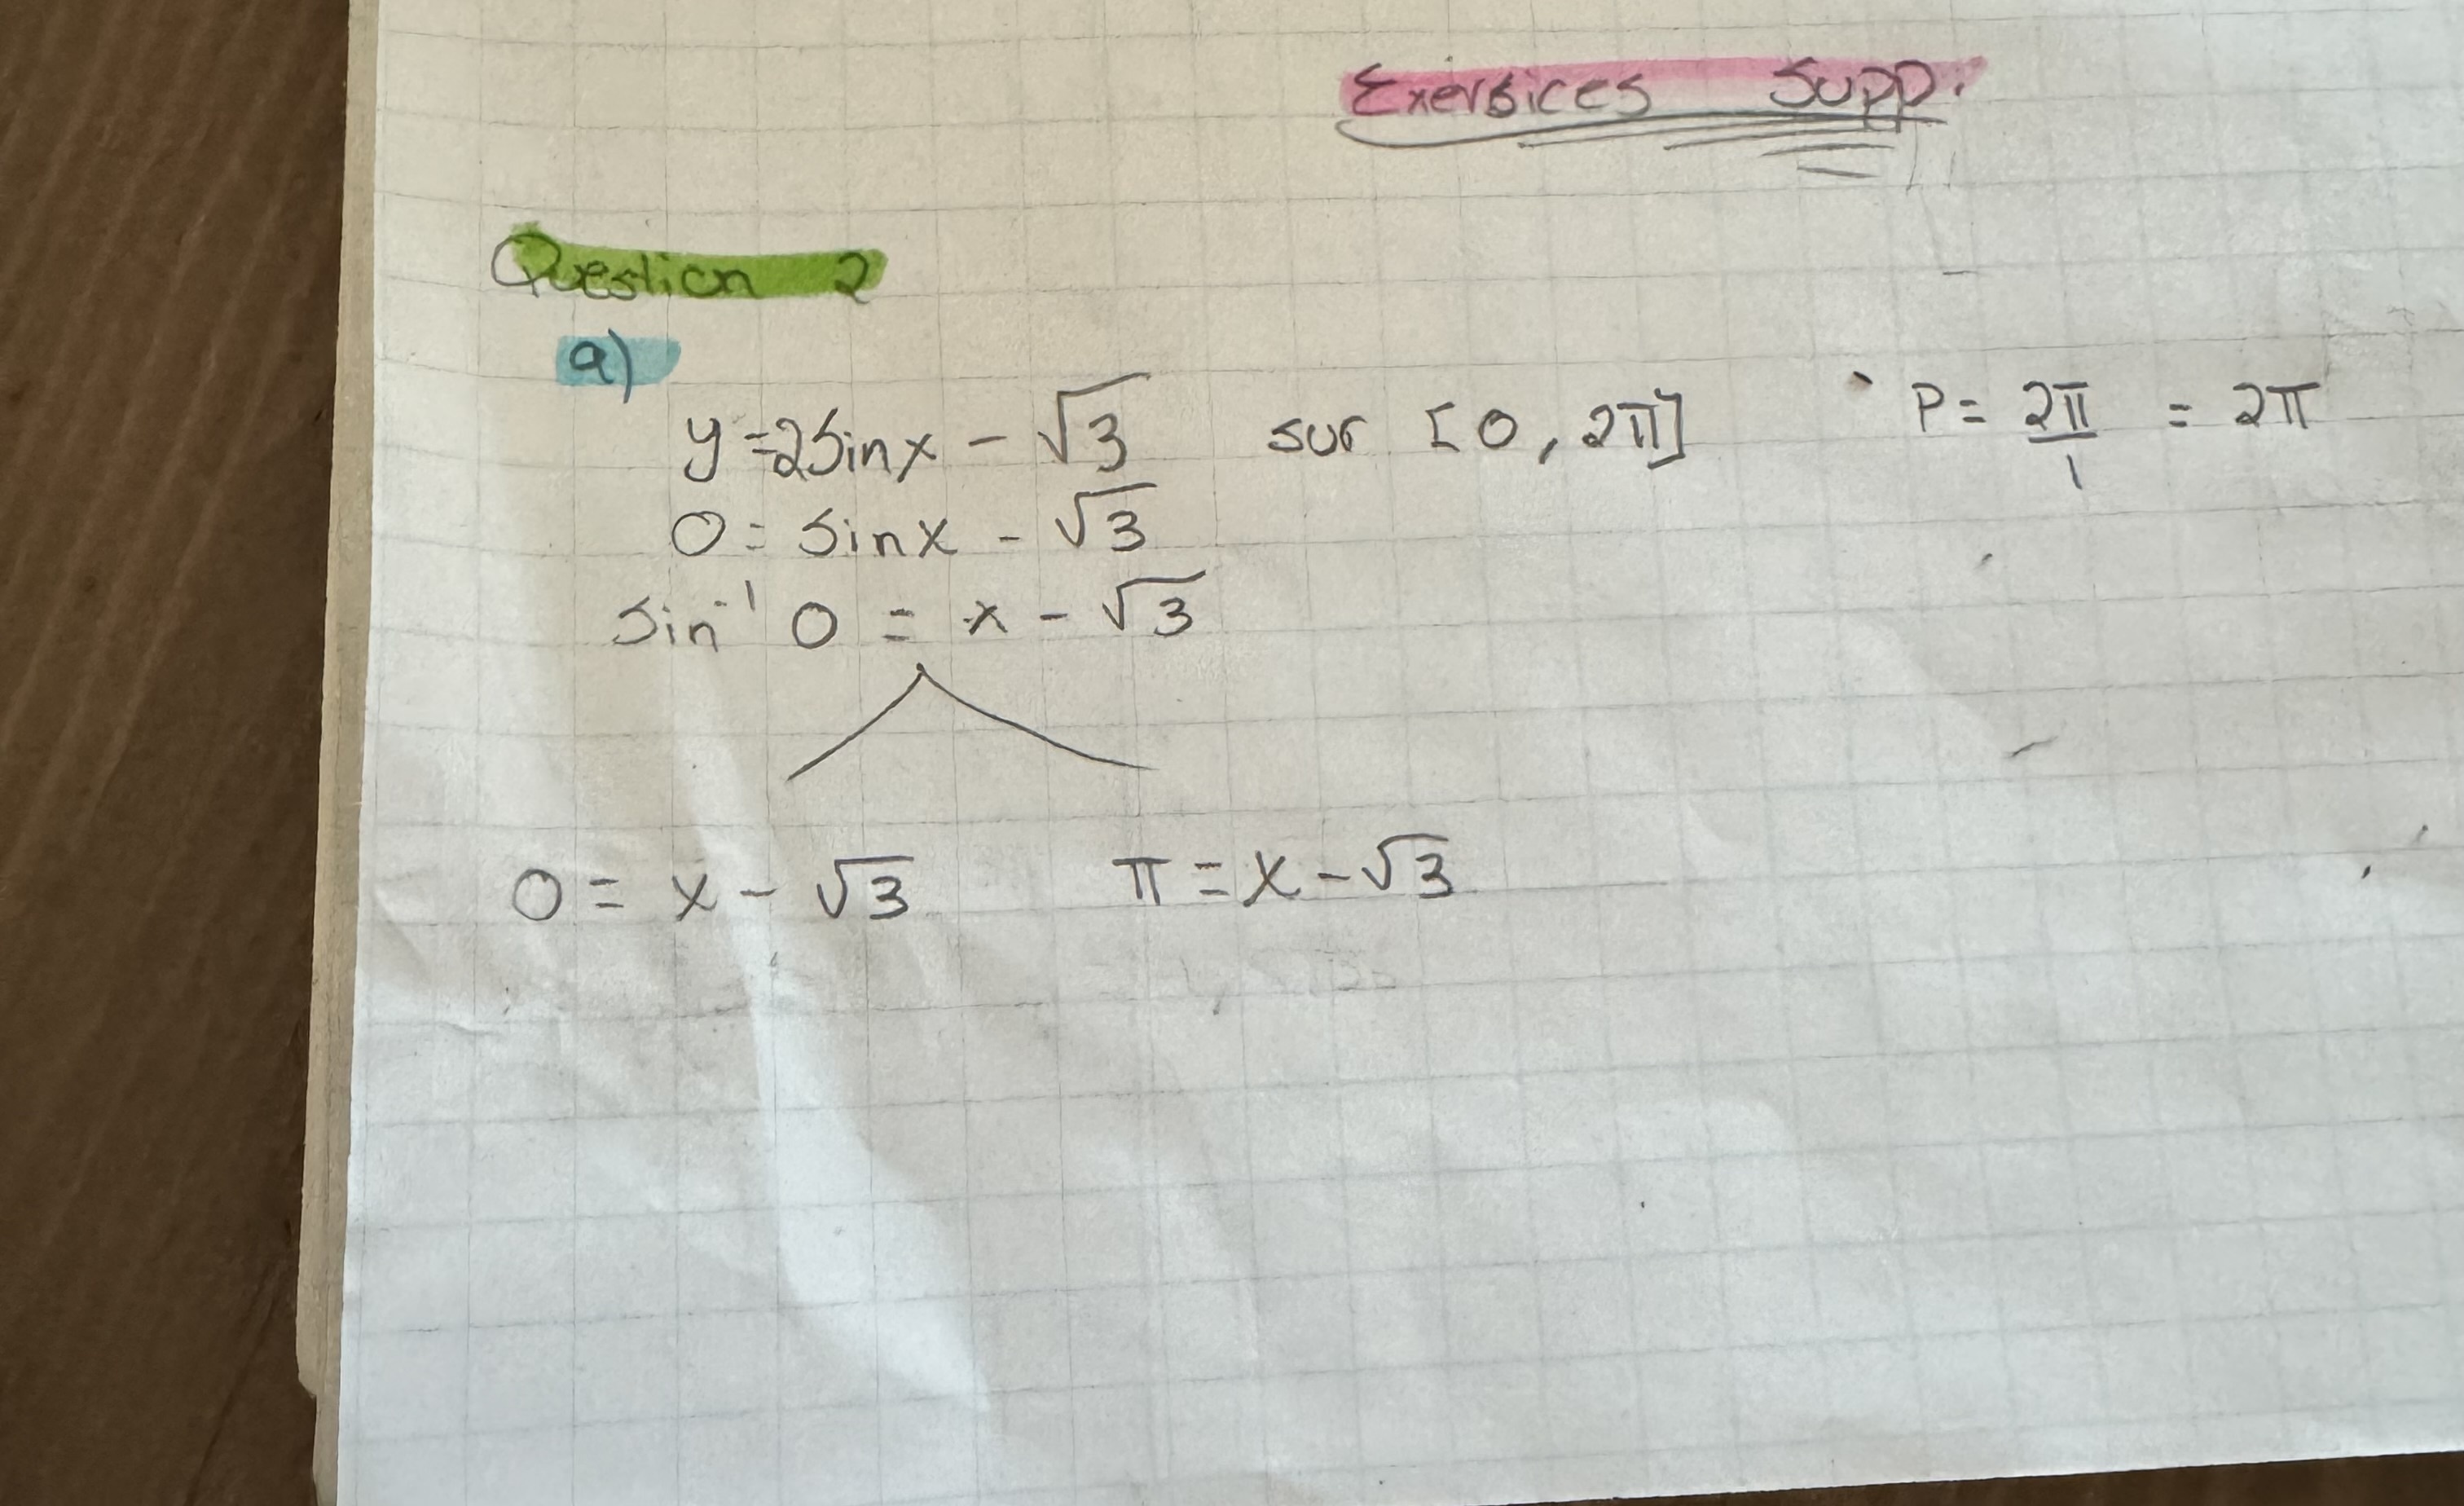 Exersices Supp.
Question 2
a)
y=2sinx - √3 sur [0, 2π] P= 2π/1 = 2π
0= sinx - √3
sin⁻¹ 0 = x - √3
0= x - √3 π = x - √3